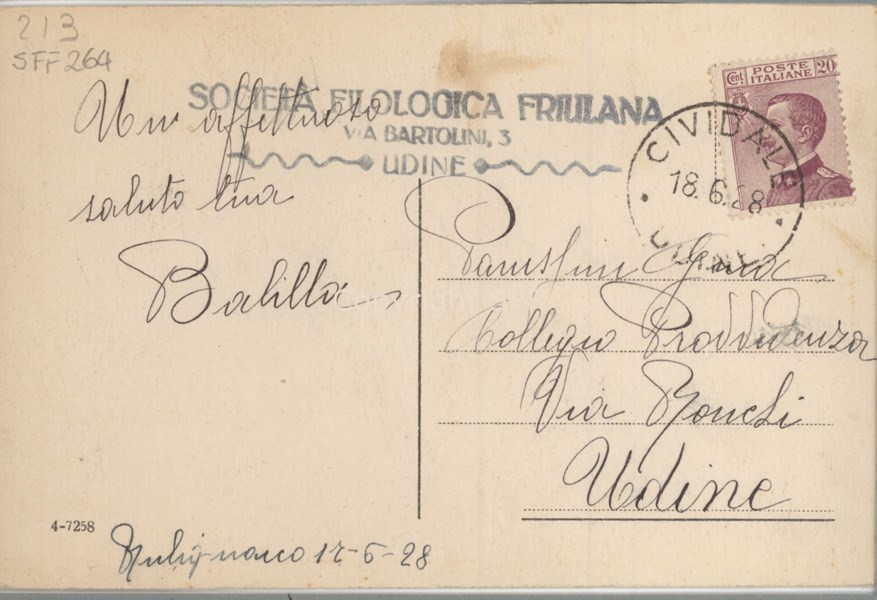 213
SFF 264
SOCIETÀ FILOLOGICA FRIULANA
VIA BARTOLINI, 3
UDINE
Cent. POSTE ITALIANE 20
CIVIDALE
18.6.28
Un affettuoso
saluto tua
Balilla
Collegio Provvidenza
Via Ronchi
Udine
4-7258
17-6-28